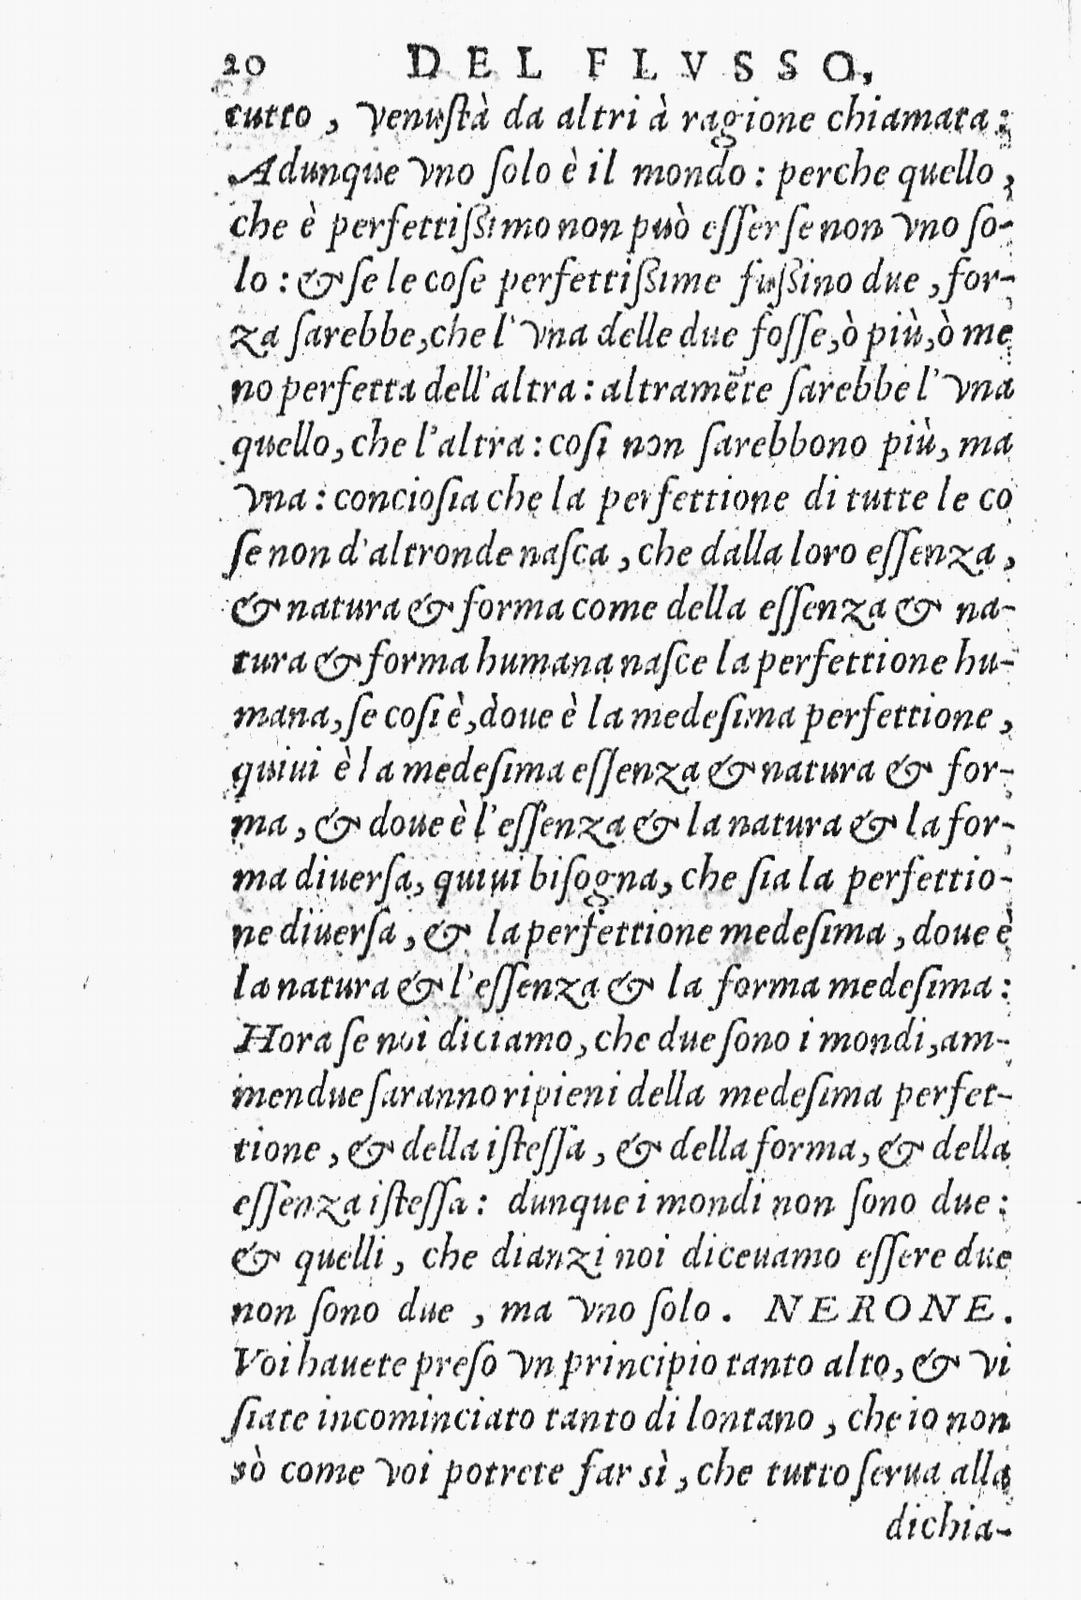 20 DEL FLVSSO,
tutto, venuſtà da altri à ragione chiamata:
Adunque vno ſolo è il mondo: perche quello,
che è perfettiſsimo non può eſſer ſe non vno ſo-
lo: & ſe le coſe perfettiſsime fuſsino due, for-
za ſarebbe, che l'vna delle due foſſe, ò più, ò me
no perfetta dell'altra: altramẽte ſarebbe l'vna
quello, che l'altra: coſi non ſarebbono più, ma
vna: concioſia che la perfettione di tutte le co
ſe non d'altronde naſca, che dalla loro eſſenza,
& natura & forma come della eſſenza & na-
tura & forma humana naſce la perfettione hu-
mana, ſe coſi è, doue è la medeſima perfettione,
quiui è la medeſima eſſenza & natura & for-
ma, & doue è l'eſſenza & la natura & la for-
ma diuerſa, quiui biſogna, che ſia la perfettio-
ne diuerſa, & la perfettione medeſima, doue è
la natura & l'eſſenza & la forma medeſima:
Hora ſe noi diciamo, che due ſono i mondi, am-
mendue ſaranno ripieni della medeſima perfet-
tione, & della iſteſſa, & della forma, & della
eſſenza iſteſſa: dunque i mondi non ſono due:
& quelli, che dianzi noi diceuamo eſſere due
non ſono due, ma vno ſolo. NERONE.
Voi hauete preſo vn principio tanto alto, & vi
ſiate incominciato tanto di lontano, che io non
sò come voi potrete far sì, che tutto ſerua alla
dichia-